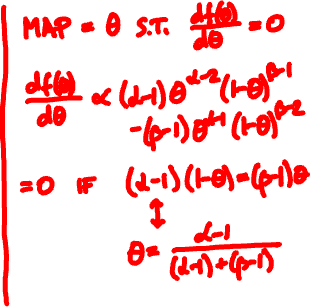 MAP = θ S.T. df(θ)/dθ = 0
df(θ)/dθ ∝ (α-1) θ^(α-2) (1-θ)^(β-1)
-(β-1) θ^(α-1) (1-θ)^(β-2)
= 0 IF (α-1)(1-θ) = (β-1)θ
↕
θ = α-1 / (α-1)+(β-1)